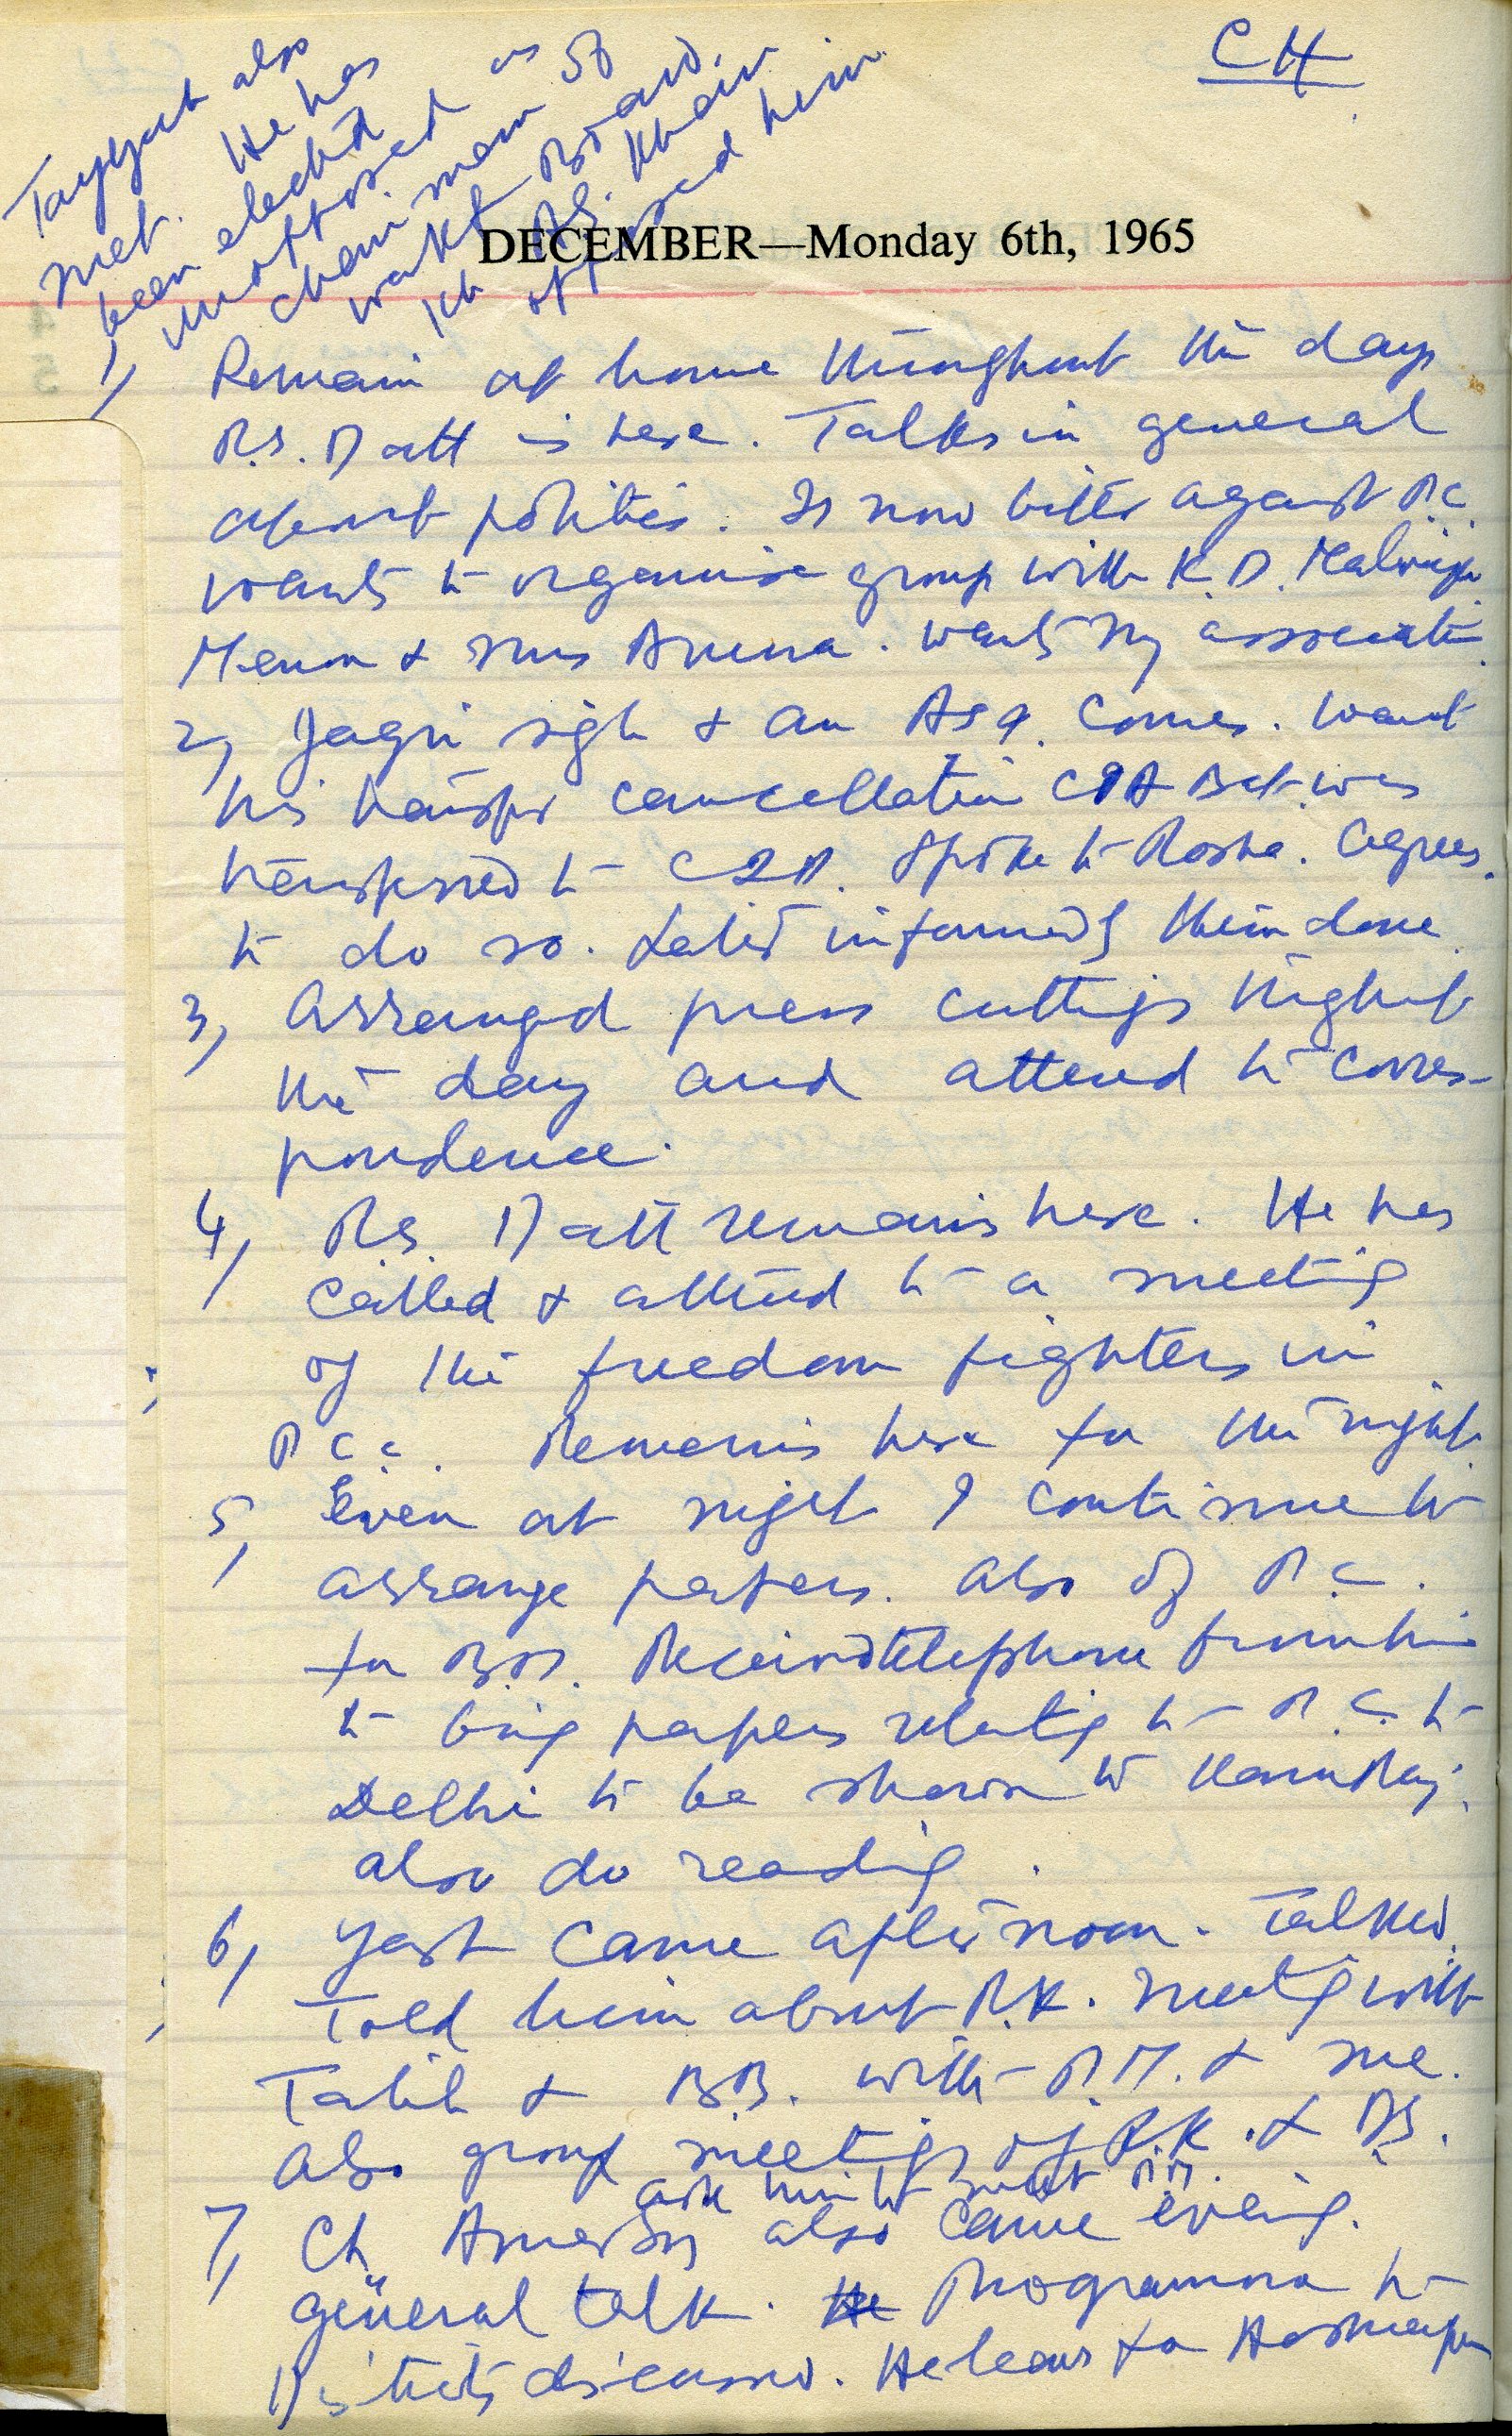 CH
Tayyab also
met. He has
been elected
unopposed as
chairman of
Wakf Board.
Kh AG. Khan
opposed him
DECEMBER—Monday 6th, 1965
1, Remain at home throughout the day
R.S. Datt is here. Talks in general
about politics. Is now bitter against P.C.
wants to organise group with K.D. Malviya
Menon & Mrs Aruna. wants my associati
2, Jagir sigh & an come. want
his transfer cancellation was
transferred to Spoke to agrees
to do so. Later informed them done
3, Arranged press cuttings throughout
the day and attend to corres-
pondence.
4, R.S. Datt remains here. He has
called & attend to a meeting
of the freedom fighters in
P.C.C. Remains here for the night
5, Even at night I continue to
arrange papers. Also of P.C.
for Received telephone from him
to bring papers relating to P.C. to
Delhi to be shown to KamRaj.
also do reading.
6, Yash came afternoon. Talked
Told him about R.K. meeting with
Talib & B.B. with P.M. & me.
Also group meetings of R.K. & DS.
ask him to meet P.M.
7, Ch Amer Sig also came evening.
general talk. Programme to
Districts discussed. He leaves for Hoshiarpur